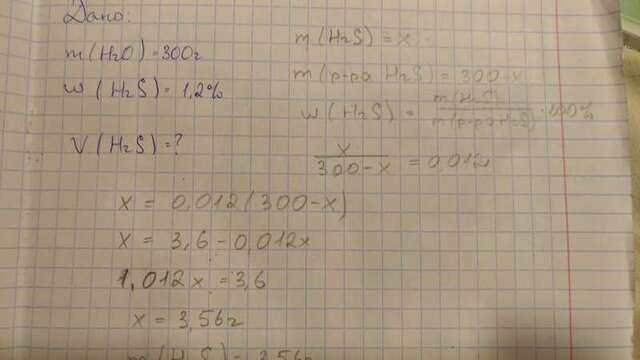 Дано:
m(H₂O) = 300г
w(H₂S) = 1,2%
V(H₂S) = ?
m(H₂S) = x
m(р-ра H₂S) = 300-x
w(H₂S) = m(H₂S) / m(р-ра H₂S) · 100%
x / 300-x = 0,012
x = 0,012(300-x)
x = 3,6 - 0,012x
1,012x = 3,6
x = 3,56г
(H₂S) = 3,56г